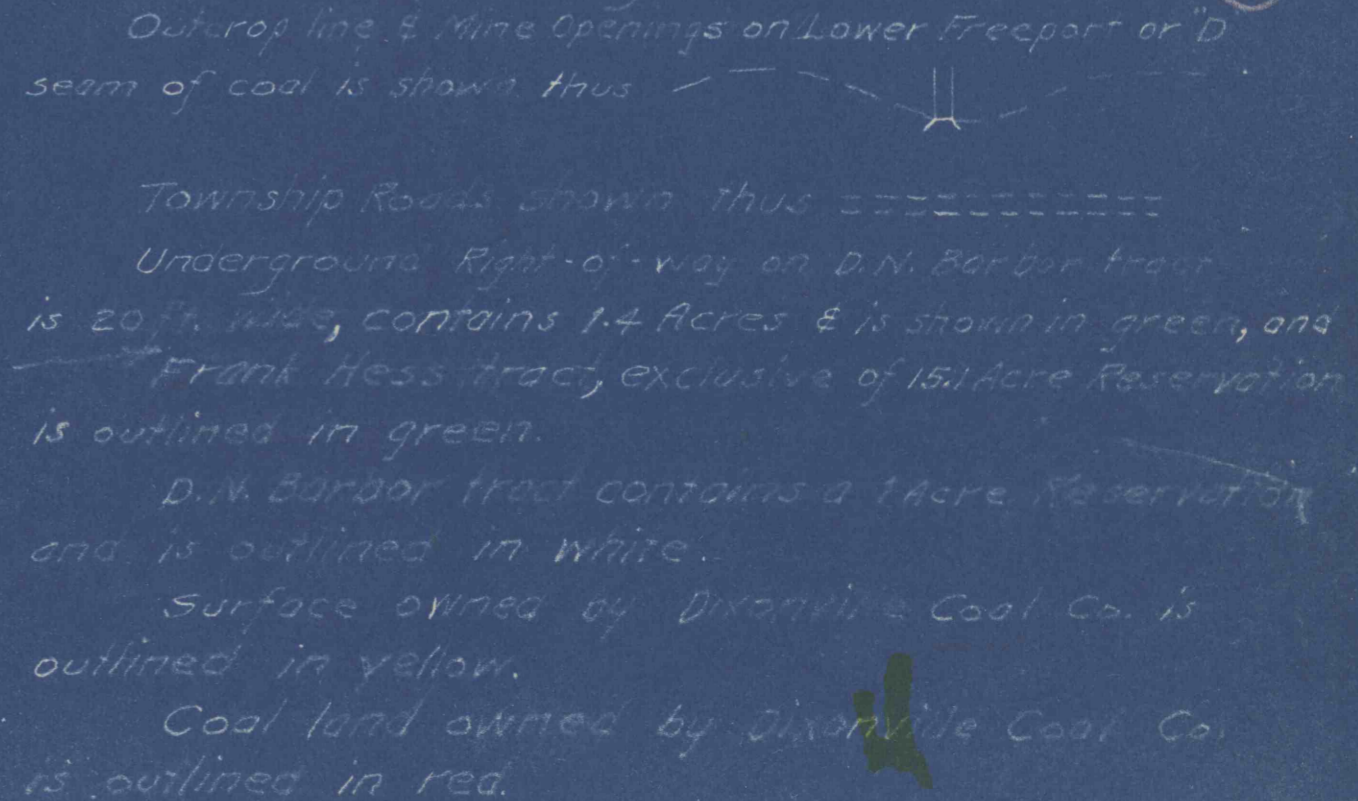 Outcrop line & Mine Openings on Lower Freeport or "D"
seam of coal is shown thus
Township Roads shown thus
Underground Right-of-way on D.N. Barbor tract
is 20 ft. wide, contains 1.4 Acres & is shown in green, and
Frank Hess tract, exclusive of 15.1 Acre Reservation
is outlined in green.
D.N. Barbor tract contains a 1 Acre Reservation
and is outlined in white.
Surface owned by Dixonville Coal Co. is
outlined in yellow.
Coal land owned by Dixonville Coal Co.
is outlined in red.